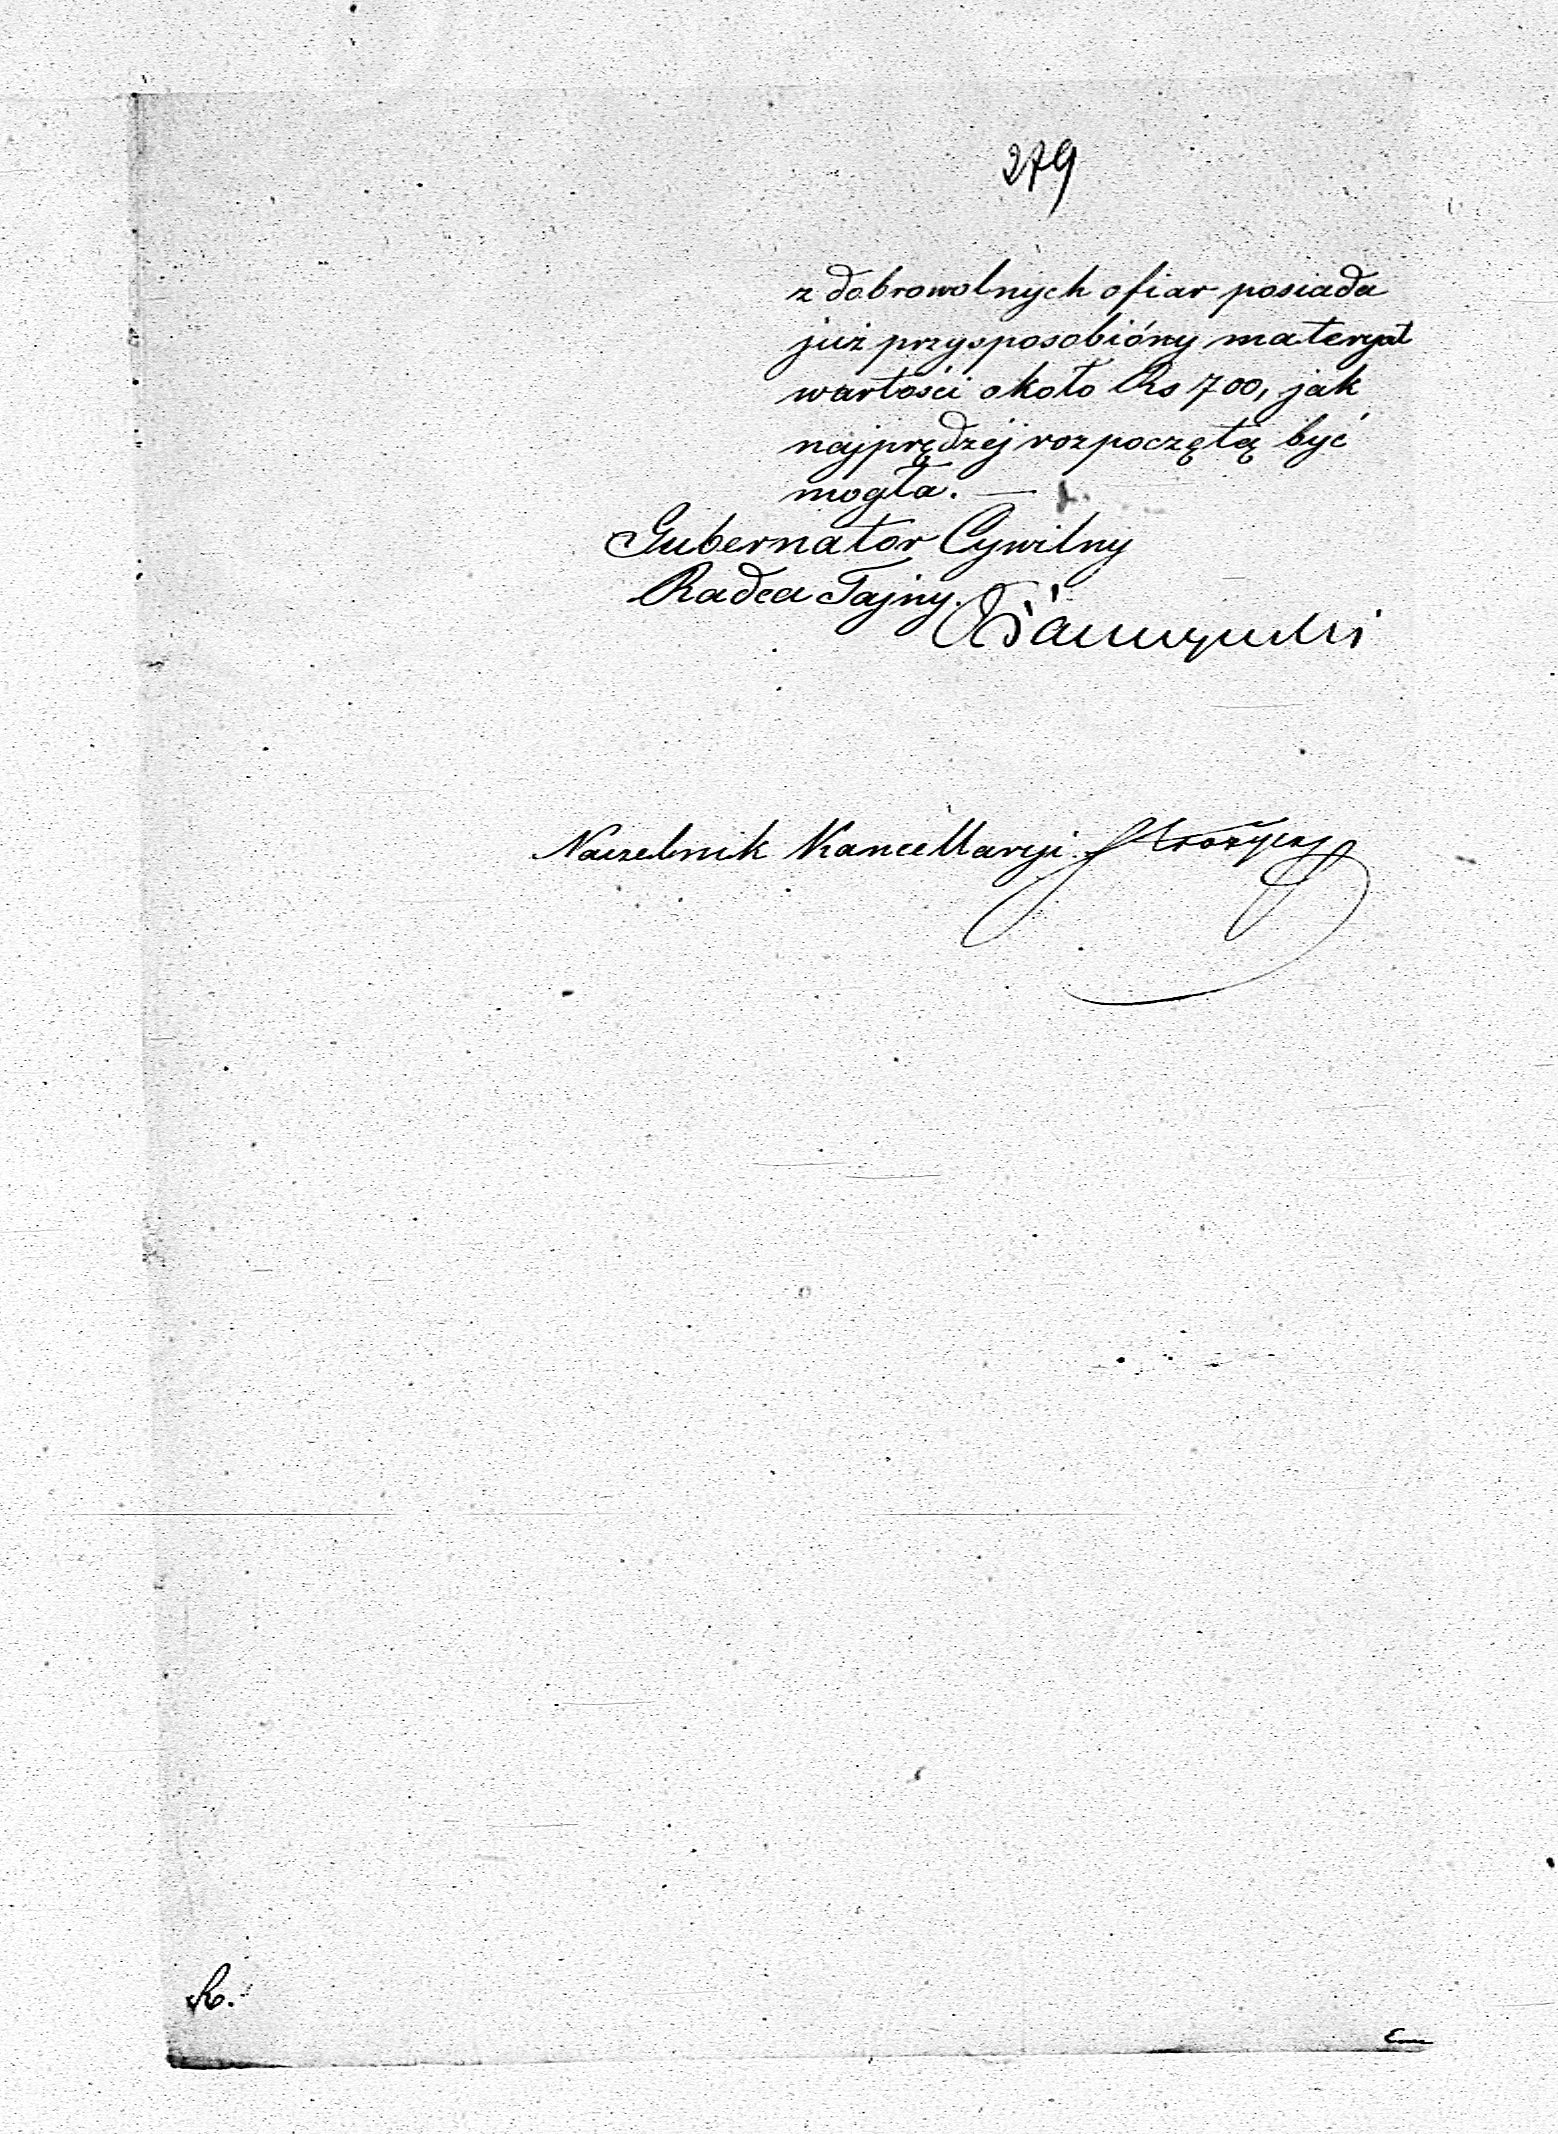 279
z dobrowolnych ofiar posiada
już przysposobióny materyał
wartości około Rs 700, jak
najprędzej rozpoczętą być
mogła. —
Gubernator Cywilny
Radca Tajny.
Naczelnik Kancellaryi